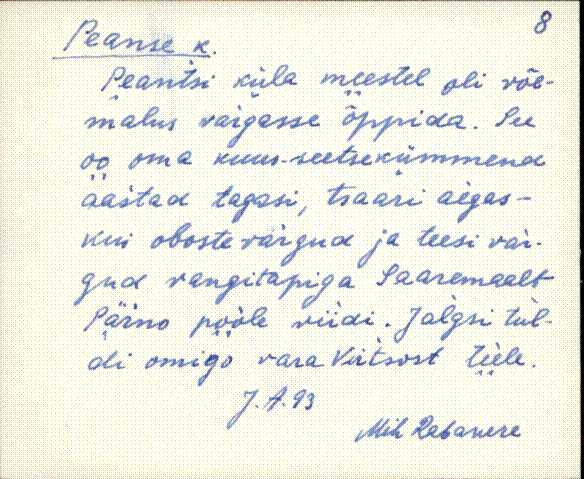 8
Peanse k.
Peantsi küla meestel oli võe-
malus värgasse õppida. See
oo oma kuus-seetsekümmend
ääštad tagasi, tsaari aegas-
kui oboste värgud ja teesi vär-
gud vangitapiga Saaremaalt
Pärno poole viidi. Jalgsi tul-
di omigo vara Virtsost teele.
J. A. 93
Mih Rebanere